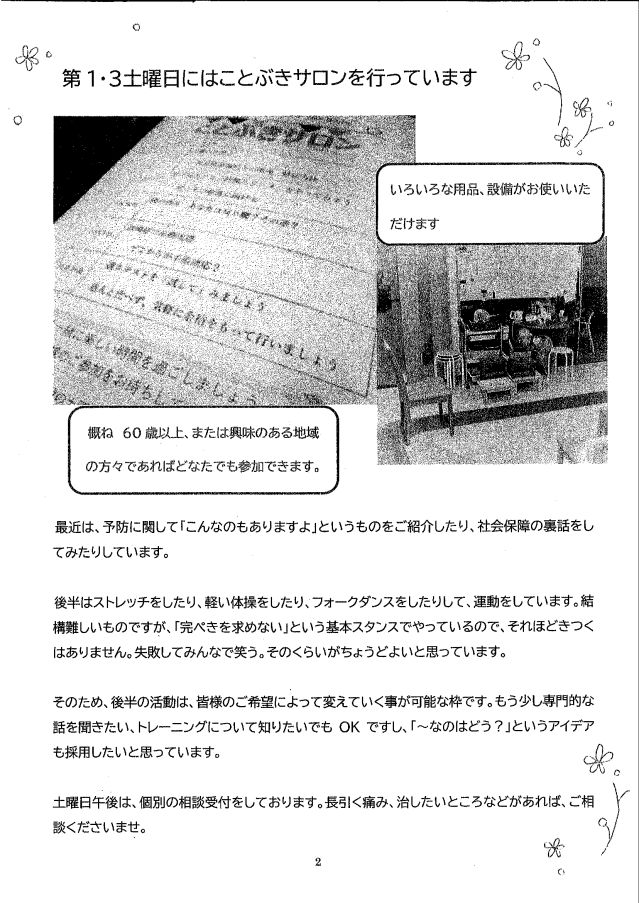 第１・３土曜日にはことぶきサロンを行っています
ことぶきサロン
みましょう
気軽に会話をもって行いましょう
楽しい時間を過ごしましょう
ご参加をお待ちして
いろいろな用品、設備がお使いいた
だけます
概ね 60歳以上、または興味のある地域
の方々であればどなたでも参加できます。
最近は、予防に関して「こんなのもありますよ」というものをご紹介したり、社会保障の裏話をし
てみたりしています。
後半はストレッチをしたり、軽い体操をしたり、フォークダンスをしたりして、運動をしています。結
構難しいものですが、「完ぺきを求めない」という基本スタンスでやっているので、それほどきつく
はありません。失敗してみんなで笑う。そのくらいがちょうどよいと思っています。
そのため、後半の活動は、皆様のご希望によって変えていく事が可能な枠です。もう少し専門的な
話を聞きたい、トレーニングについて知りたいでも OK ですし、「～なのはどう？」というアイデア
も採用したいと思っています。
土曜日午後は、個別の相談受付をしております。長引く痛み、治したいところなどがあれば、ご相
談くださいませ。
2